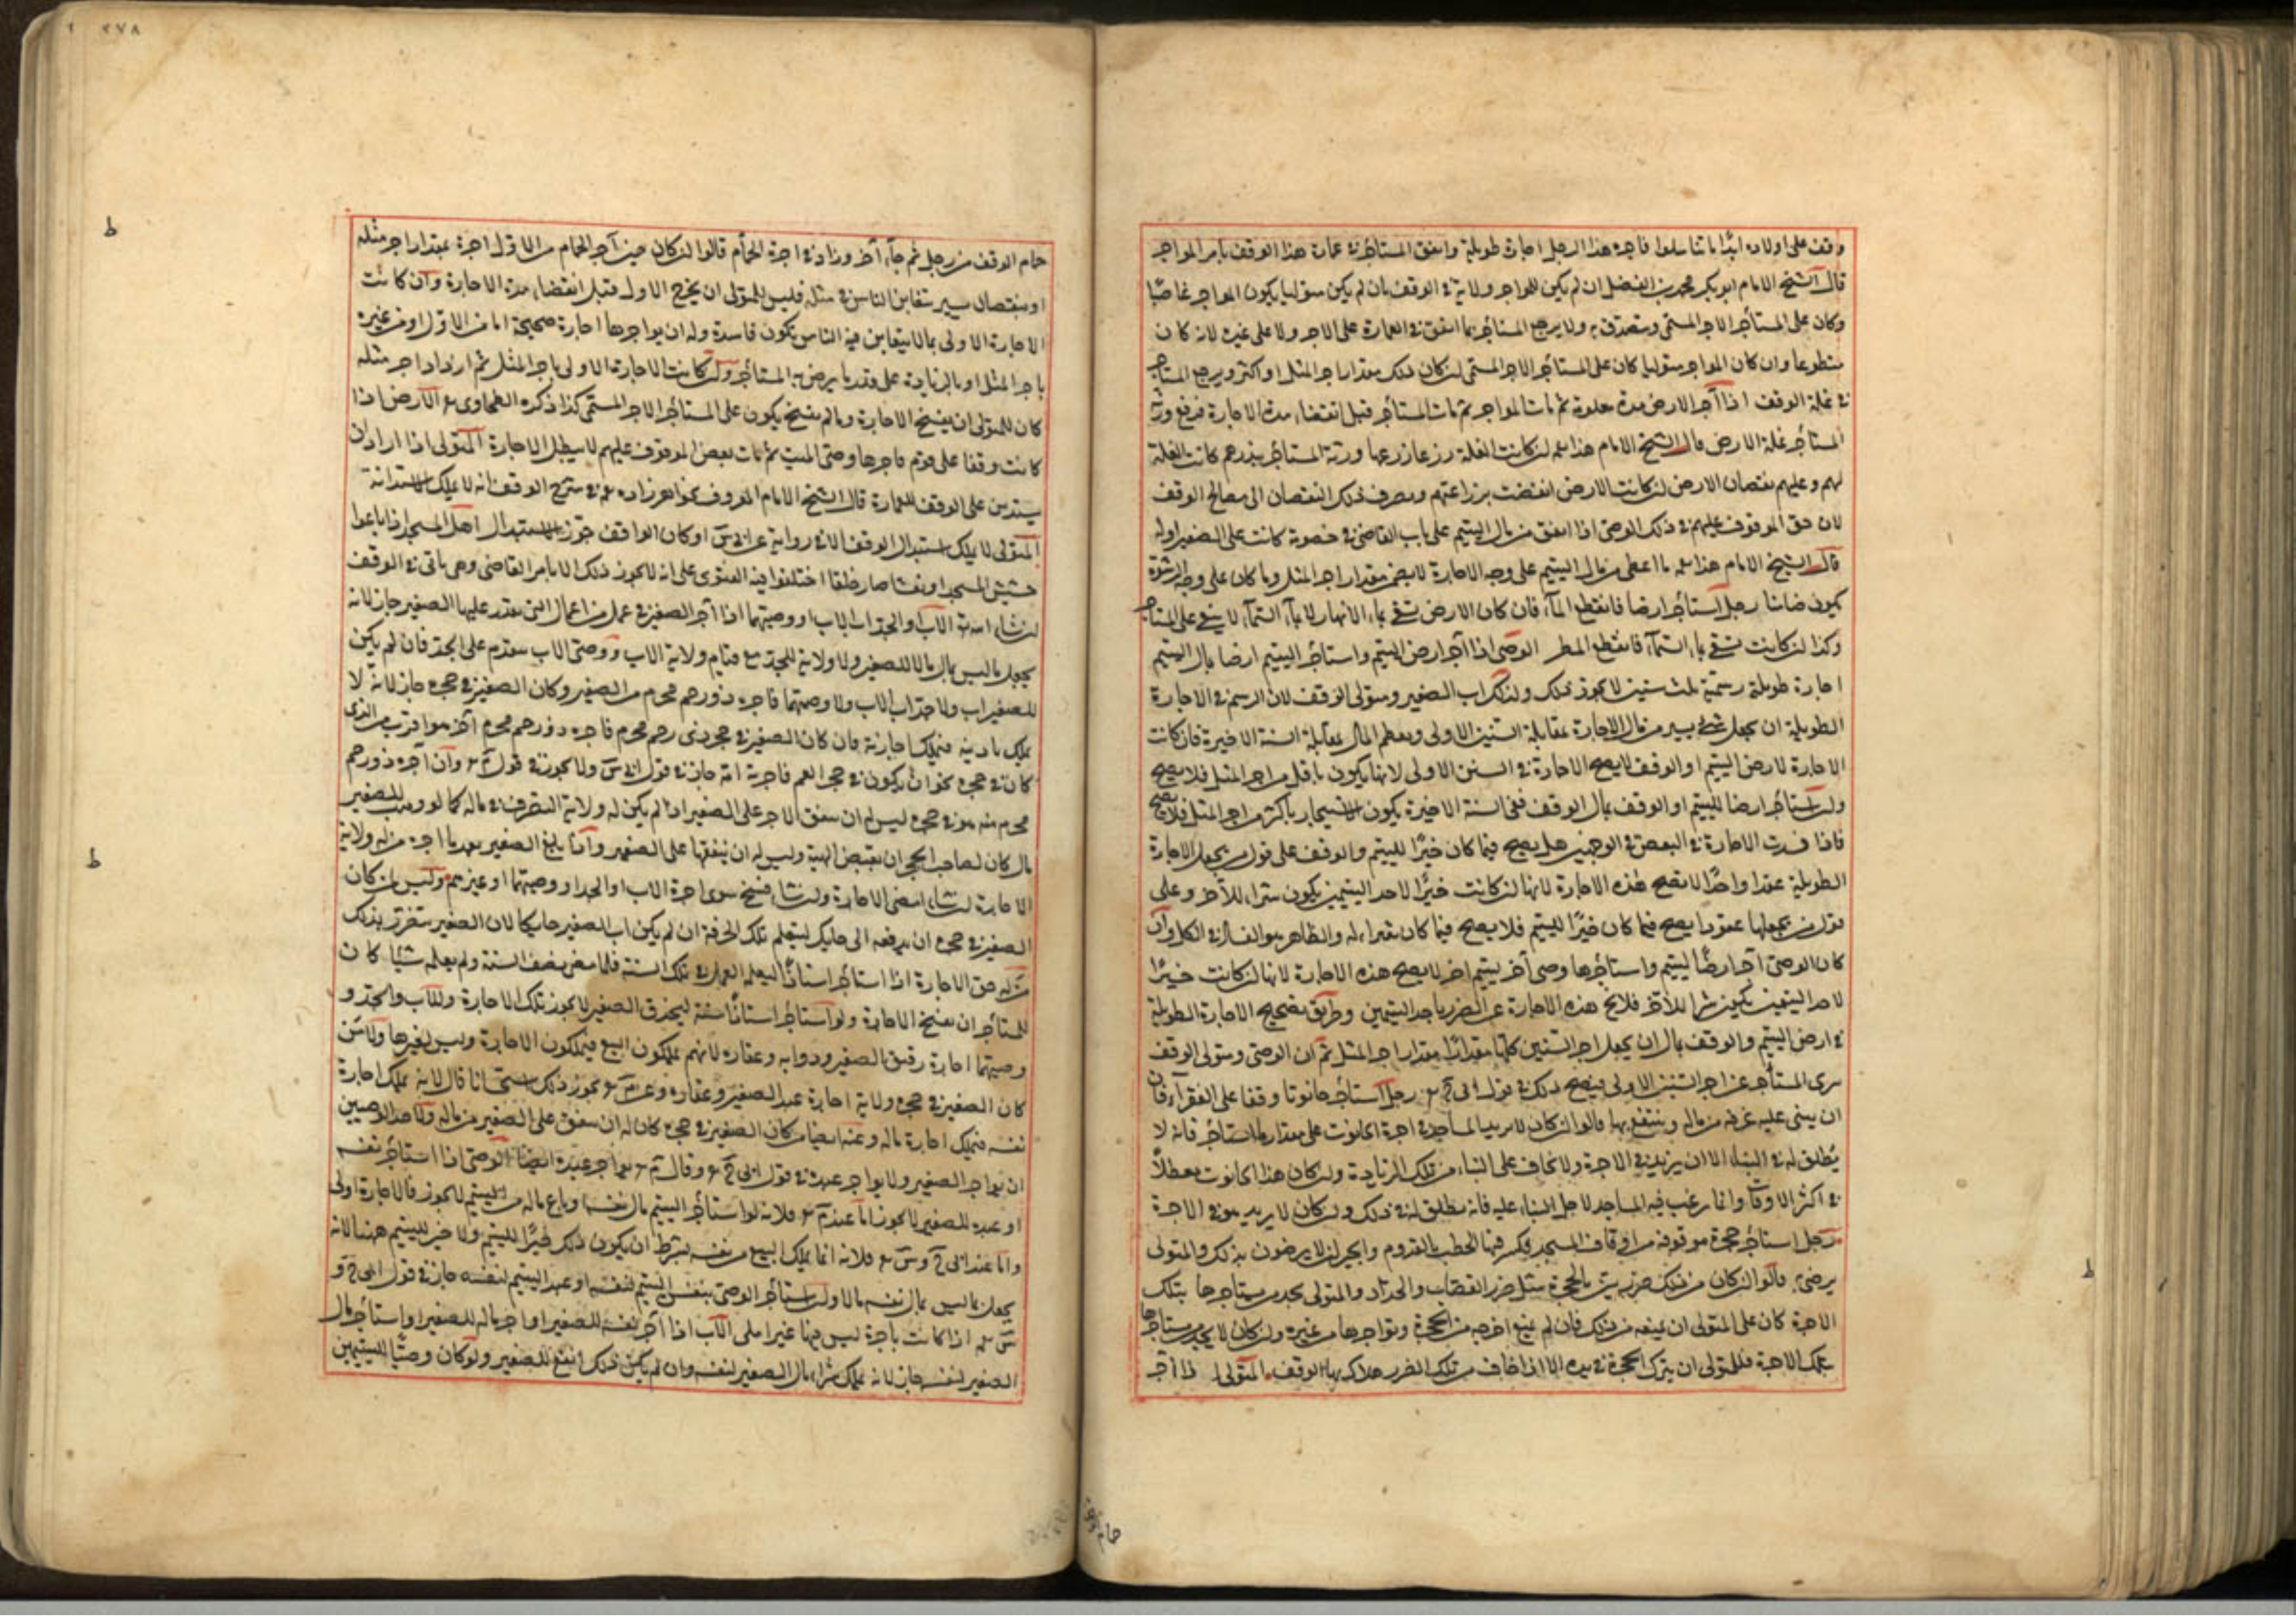 وقف على اولاده ابدًا ما تناسلوا فاجره هذا الرجل اجارة طويلة وانفق المستأجر في عمارة هذا الوقف بامر المواجر
قال الشيخ الامام ابو بكر محمد بن الفضل ان لم يكن للمواجر ولاية في الوقف بان لم يكن متوليا يكون المواجر غاصبًا
وكان على المستأجر الاجر المسمى ويتصدق به ولا يرجع المستأجر بما انفق في العمارة على الاجر ولا على غيره لانه كان
متطوعا وان كان المواجر متوليا كان على المستأجر الاجر المسمى ان كان ذلك مقدار اجر المثل او اكثر ويرجع المستاجر
في غلة الوقف اذا آجر الارض مدة معلومة ثم مات المواجر ثم مات المستأجر قبل انقضاء مدة الاجارة فرفع ورثة
المستأجر غلة الارض قال الشيخ الامام هذا ان كانت الغلة زرعا زرعها ورثة المستأجر ببذرهم كانت الغلة
لهم وعليهم نقصان الارض ان كانت الارض انتقضت بزراعتهم ويصرف ذلك النقصان الى مصالح الوقف
لان حق الموقوف عليهم في ذلك الوصى اذا انفق من مال اليتيم على باب القاضى في خصومة كانت على الصغير او له
قال الشيخ الامام هذا ما اعطى من مال اليتيم على وجه الاجارة لا يضمن مقدار اجر المثل وما كان على وجه الرشوة
يكون ضامنا رجل استأجر ارضا فانقطع الماء فان كان الارض تسقى بماء الانهار لا بماء السماء لا شىء على المستاجر
وكذا ان كانت تسقى بماء السماء فانقطع المطر الوصى اذا آجر ارض اليتيم واستأجر لليتيم ارضا بمال اليتيم
اجارة طويلة رسمية ثلث سنين لا يجوز ذلك وكذلك اب الصغير ومتولى الوقف لان الرسم في الاجارة
الطويلة ان يجعل شىء يسير من مال الاجارة بمقابلة السنين الاولى ومعظم المال بمقابلة السنة الاخيرة فان كانت
الاجارة لارض اليتيم او الوقف لا يصح الاجارة في السنين الاولى لانها يكون باقل من اجر المثل فلا يصح
وان استأجر ارضا لليتيم او الوقف بمال الوقف ففى السنة الاخيرة يكون الاستيجار باكثر من اجر المثل فلا يصح
فاذا فسدت الاجارة في البعض في الوجهين هل يصح فيما كان خيرًا لليتيم والوقف على قول من يجعل الاجارة
الطويلة عقدا واحدًا لا تصح هذه الاجارة لانها ان كانت خيرًا لاحد اليتيمين يكون شرا للاخر وعلى
قول من يجعلها عقودا يصح فيما كان خيرًا لليتيم فلا يصح فيما كان شرا له والظاهر هو الفساد في الكل وان
كان الوصى آجر ارضًا ليتيم واستأجرها وصى آخر ليتيم اخر لا يصح هذه الاجارة لانها ان كانت خيرًا
لاحد اليتيمين يكون شرا للاخر فلا يخ هذه الاجارة عن الضرر باحد اليتيمين وطريق تصحيح الاجارة الطويلة
في ارض اليتيم والوقف بمال ان يجعل اجر السنين كلها مقدارًا مقدار اجر المثل ثم ان الوصى ومتولى الوقف
يبرى المستأجر عن اجر السنين الاولى فيصح ذلك في قول رجل استأجر حانوتا وقفا على الفقراء فاراد
ان يبنى عليه غرفة من ماله وينتفع بها قالوا ان كان لا يزيد المستاجر في اجرة الحانوت على مقدار ما استأجر فانه لا
يُطلق له في البناء الا ان يزيد في الاجرة ولا يخاف على البناء من تلك الزيادة وان كان هذا الحانوت معطلاً
في اكثر الاوقات وانما رغب فيه المستاجر لاجل البناء عليه فانه يطلق له في ذلك وان كان لا يزيد في الاجرة
رجل استأجر حجرة موقوفة من اوقاف المسجد فكسر فيها الحطب بالقدوم والجيران لا يرضون بذلك والمتولى
يرضى قالوا ان كان من ذلك ضرر بين بالحجرة مثل ضرر القصاب والحداد والمتولى يجد من يستاجرها بتلك
الاجرة كان على المتولى ان يمنعه من ذلك فان لم يمنع اخرجه من الحجرة ويواجرها من غيره وان كان لا يجد من يستاجرها
بتلك الاجرة فللمتولى ان يترك الحجرة في يده الا اذا خاف من تلك الضرر هلاك بناء الوقف المتولى اذا آجر
حمام الوقف
٢٧٨
حمام الوقف من رجل ثم جاء آخر وزاد في اجرة الحمام قالوا ان كان حين آجر الحمام من الاول اجرة بمقدار اجر مثله
او بنقصان يسير يتغابن الناس في مثله فليس للمتولى ان يخرج الاول قبل انقضاء مدة الاجارة وان كانت
الاجارة الاولى بما لا يتغابن فيه الناس يكون فاسدة وله ان يواجرها اجارة صحيحة اما من الاول او من غيره
باجر المثل او بالزيادة على قدر ما يرضى به المستأجر وان كانت الاجارة الاولى باجر المثل ثم ازداد اجر مثله
كان للمتولى ان يفسخ الاجارة وما لم يفسخ يكون على المستأجر الاجر المسمى كذا ذكره الطحاوى الارض اذا
كانت وقفا على قوم فاجرها وصى الميت ثم مات بعض الموقوف عليهم لا يبطل الاجارة المتولى اذا اراد ان
يستدين على الوقف للعمارة قال الشيخ الامام المعروف بخواهر زاده في شرح الوقف انه لا يملك الاستدانة
المتولى لا يملك استبدال الوقف الا في رواية عن او كان الواقف جوز الاستبدال اهل المسجد اذا باعوا
حشيش المسجد او نعشا صار خلقا اختلفوا فيه الفتوى على انه لا يجوز ذلك الا بامر القاضى وهى باقى في الوقف
ان شاء الله الاب والجد اب الاب او وصيهما اذا آجر الصغير في عمل من اعمال التى يقدر عليها الصغير جاز لانه
يجعل ما ليس بمال مالا للصغير ولا ولاية للجد مع قيام ولاية الاب ووصى الاب مقدم على الجد فان لم يكن
للصغير اب ولا جد اب الاب ولا وصيهما فاجره ذو رحم محرم من الصغير وكان الصغير في حجره جاز لانه لا
يملك تاديبه فيملك اجارته فان كان الصغير في حجر ذى رحم محرم فاجره ذو رحم محرم آخر هو اقرب من الذى
كان في حجره نحو ان يكون في حجر العم فاجرته امه جاز في قول ولا يجوز في قول وان آجره ذو رحم
محرم منه هو في حجره ليس له ان ينفق الاجر على الصغير اذا لم يكن له ولاية التصرف في ماله كما لو وهب للصغير
مال كان لصاحب الحجر ان يقبض الهبة وليس له ان ينفقها على الصغير واذا بلغ الصغير بعد ما اجره من له ولاية
الاجارة ان شاء امضى الاجارة وان شاء فسخ سوى اجرة الاب او الجد او وصيهما او غيرهم وليس لمن كان
الصغير في حجره ان يدفعه الى حايك ليتعلم تلك الحرفة ان لم يكن اب الصغير حايكا لان الصغير يتضرر بذلك
من له حق الاجارة اذا استأجر استاذًا ليعلمه العمل في تلك السنة فلما مضى نصف السنة ولم يعلمه شيئا كان
للمستأجر ان يفسخ الاجارة ولو استأجر استاذًا سنة ليحذق الصغير لا يجوز تلك الاجارة وللاب والجد و
وصيهما اجارة رقيق الصغير ودوابه وعقاره لانهم يملكون البيع فيملكون الاجارة وليس لغيرها ولا من
كان الصغير في حجره ولاية اجارة عبد الصغير وعقاره وعن يجوز ذلك استحسانا قال لانه يملك اجارة
نفسه فيملك اجارة ماله وعنه ايضا من كان الصغير في حجره كان له ان ينفق على الصغير من ماله ولاحد الوصيين
ان يواجر الصغير ولا يواجر عبده في قول وقال يواجر عبده ايضا الوصى اذا استأجر نفسه
او عبده للصغير لا يجوز اما عند فلانه لو استأجر اليتيم مال نفسه او باع ماله من اليتيم لا يجوز فالاجارة اولى
واما عند فلانه انما يملك البيع من نفسه بشرط ان يكون ذلك خيرًا لليتيم ولا خير لليتيم هنا لانه
يجعل ما ليس بمال نفسه مالا وان استأجر الوصى نفس اليتيم لنفسه او عبد اليتيم لنفسه جاز في قول و
اذا كانت باجرة ليس فيها غبرا على الاب اذا آجر نفسه للصغير او اجر ماله للصغير او استأجر مال
الصغير لنفسه جاز لانه يملك شراء مال الصغير لنفسه وان لم يكن ذلك انفع للصغير ولو كان وصيًا لليتيمين